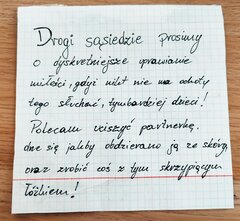 Drogi sąsiedzie prosimy
o dyskretniejsze uprawianie
miłości, gdyż nikt nie ma ochoty
tego słuchać, tymbardziej dzieci!
Polecam uciszyć partnerkę,
drze się jakby obdzierano ją ze skóry,
oraz zrobić coś z tym skrzypiącym
łóżkiem!